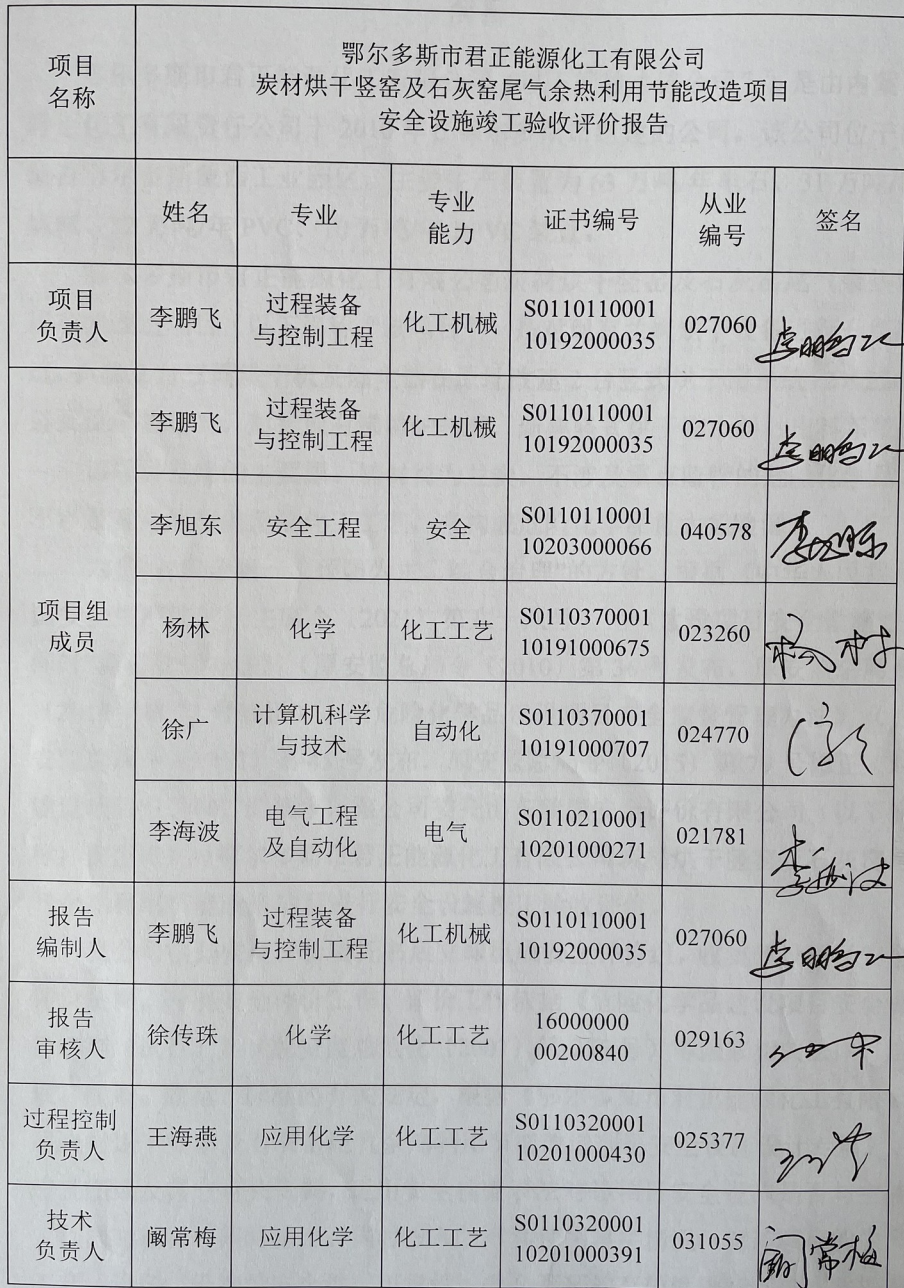 项目
名称
鄂尔多斯市君正能源化工有限公司
炭材烘干竖窑及石灰窑尾气余热利用节能改造项目
安全设施竣工验收评价报告
姓名
专业
专业
能力
证书编号
从业
编号
签名
项目
负责人
李鹏飞
过程装备
与控制工程
化工机械
S0110110001
10192000035
027060
李鹏飞
项目组
成员
李鹏飞
过程装备
与控制工程
化工机械
S0110110001
10192000035
027060
李鹏飞
李旭东
安全工程
安全
S0110110001
10203000066
040578
李旭东
杨林
化学
化工工艺
S0110370001
10191000675
023260
杨林
徐广
计算机科学
与技术
自动化
S0110370001
10191000707
024770
李海波
电气工程
及自动化
电气
S0110210001
10201000271
021781
李海波
报告
编制人
李鹏飞
过程装备
与控制工程
化工机械
S0110110001
10192000035
027060
李鹏飞
报告
审核人
徐传珠
化学
化工工艺
16000000
00200840
029163
过程控制
负责人
王海燕
应用化学
化工工艺
S0110320001
10201000430
025377
技术
负责人
阚常梅
应用化学
化工工艺
S0110320001
10201000391
031055
阚常梅